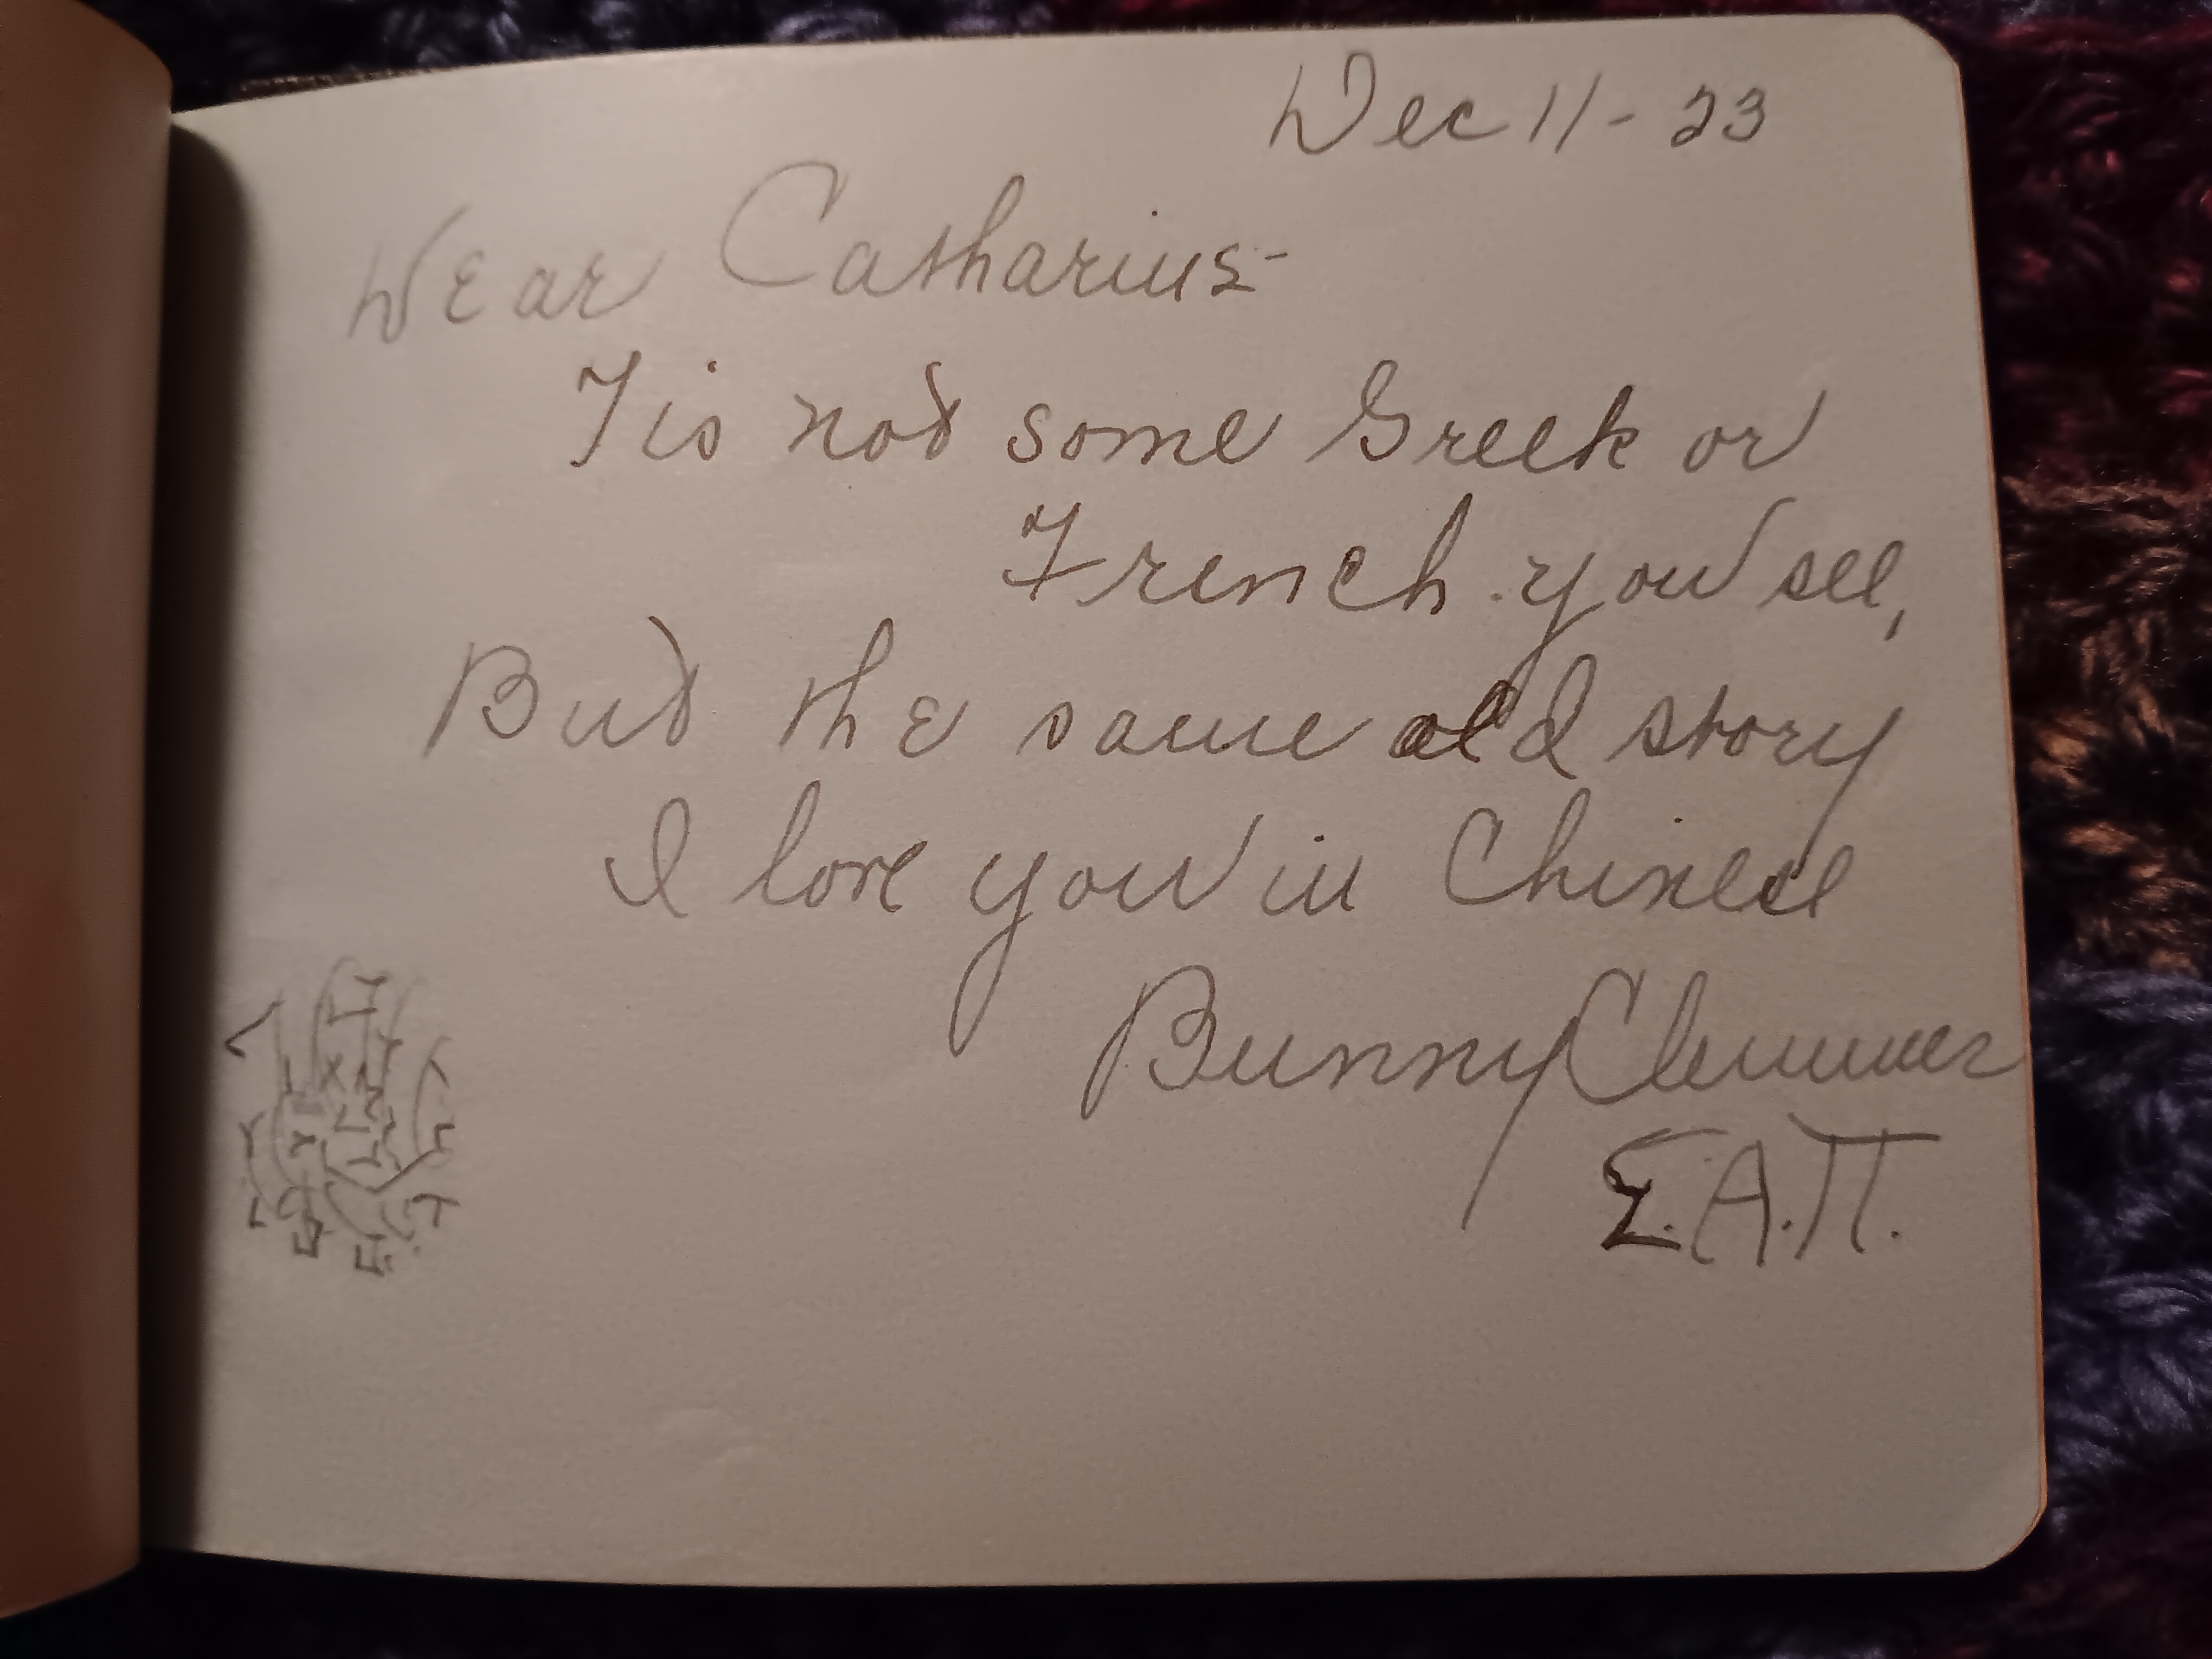 Dec 11 - 23
Dear Catharine -
Tis not some Greek or
French you see,
But the same old story
I love you in Chinese
Bunny Clemmer
Σ.A.Π.